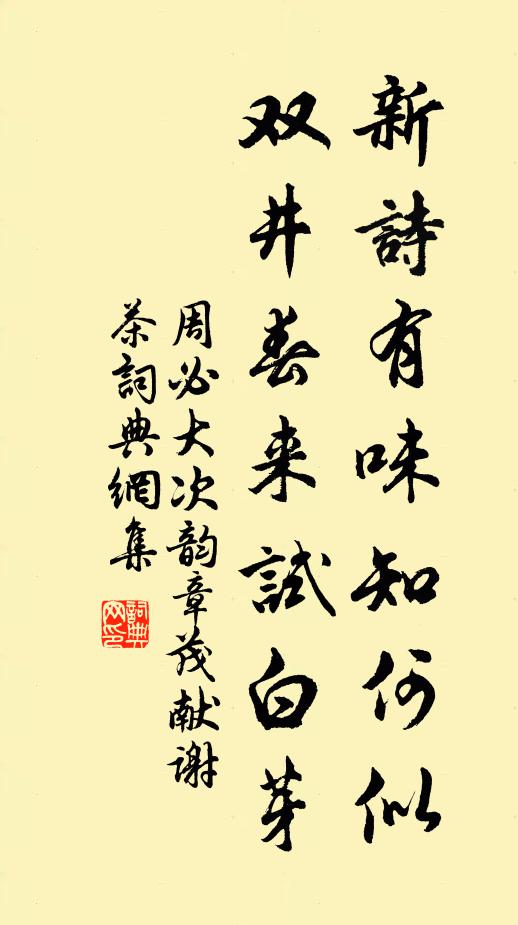 新詩有味知何似
双井春来試白芽
周必大次韵章茂献谢
茶詞典網集
詞典网印